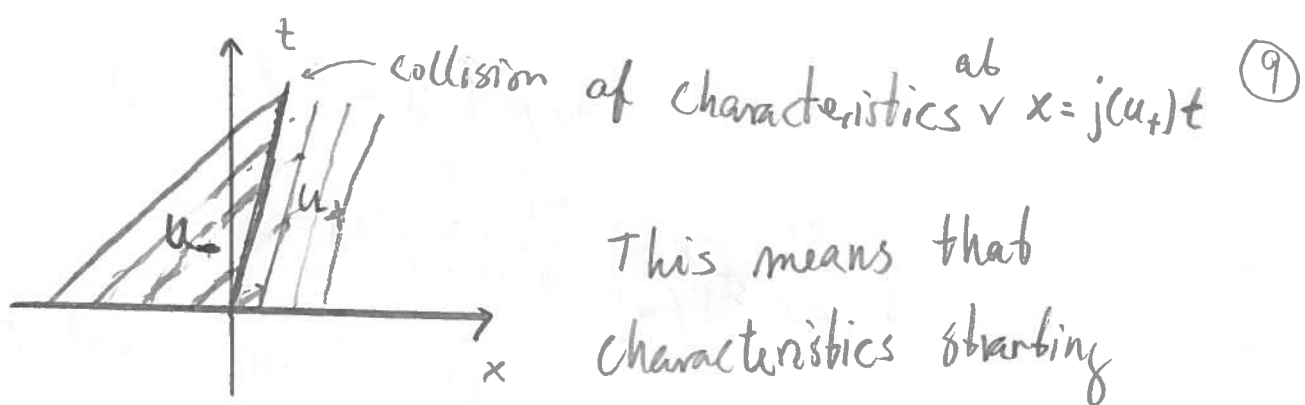 t
collision of characteristics at x = j(u₊)t ⑨
u₋ u₊
This means that
x
characteristics strarting